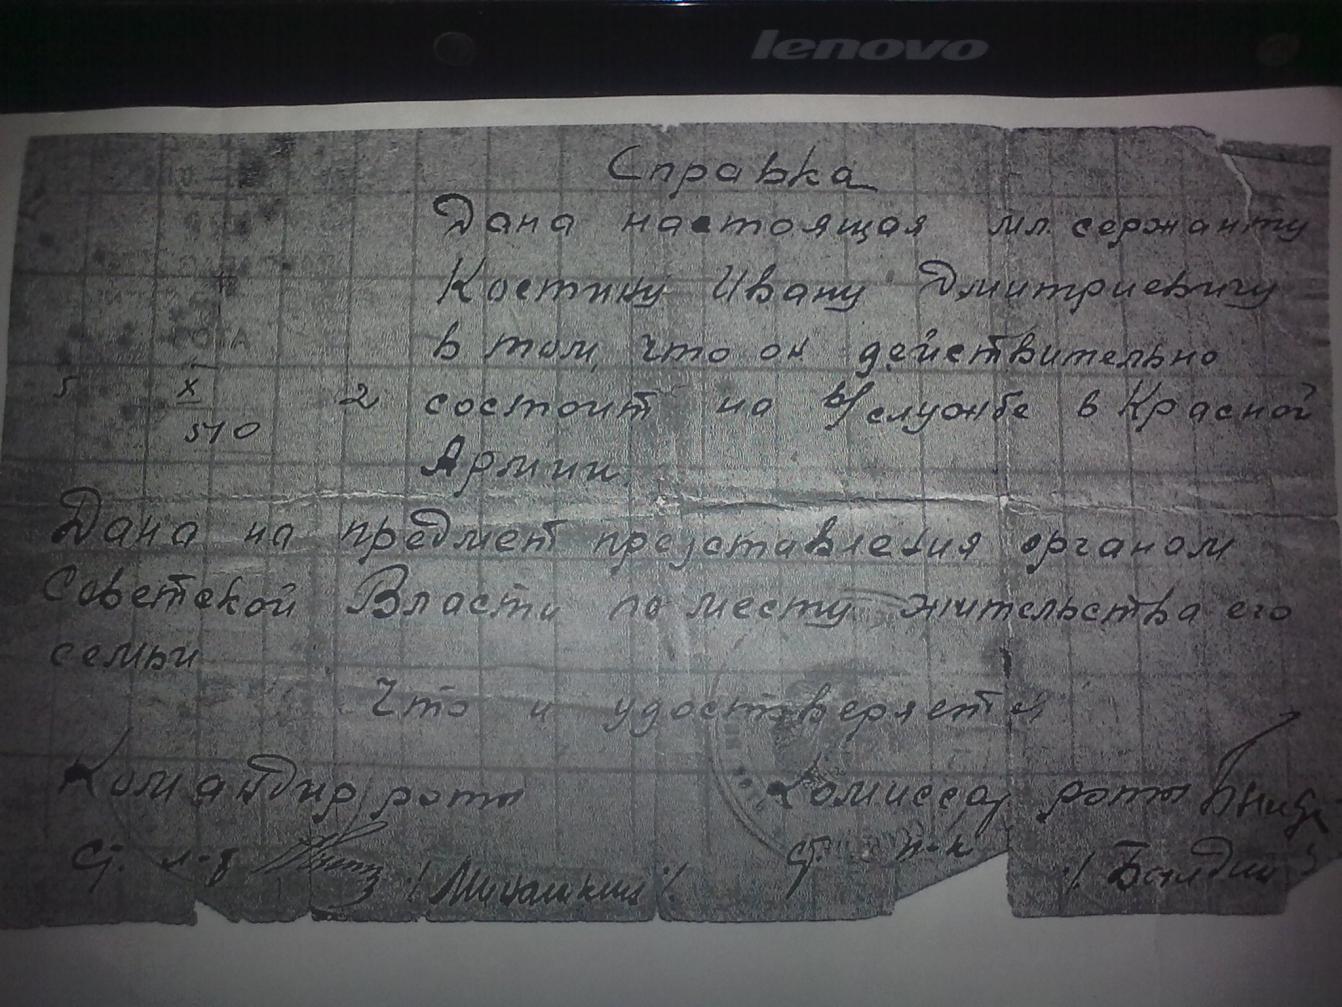 lenovo
Справка
Дана настоящая мл. сержанту
Костину Ивану Дмитриевичу
в том, что он действительно
5 X 2 состоит на в/службе в Красной
510
Армии.
Дана на предмет представления органам
Советской Власти по месту жительства его
семьи
Что и удостверяется
Командир роты Комиссар роты
ст. л-т ст. п-к